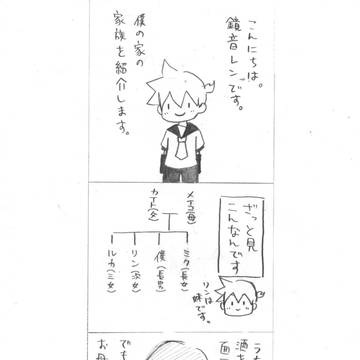 こんにちは。
鏡音レンです。
僕の家の
家族を紹介します。
ざっと見
こんなんです
リンは
妹です。
メイコ(母)
カイト(父)
ミク(長女)
僕(長男)
リン(次女)
ルカ(三女)
酒を
面
でも
お母